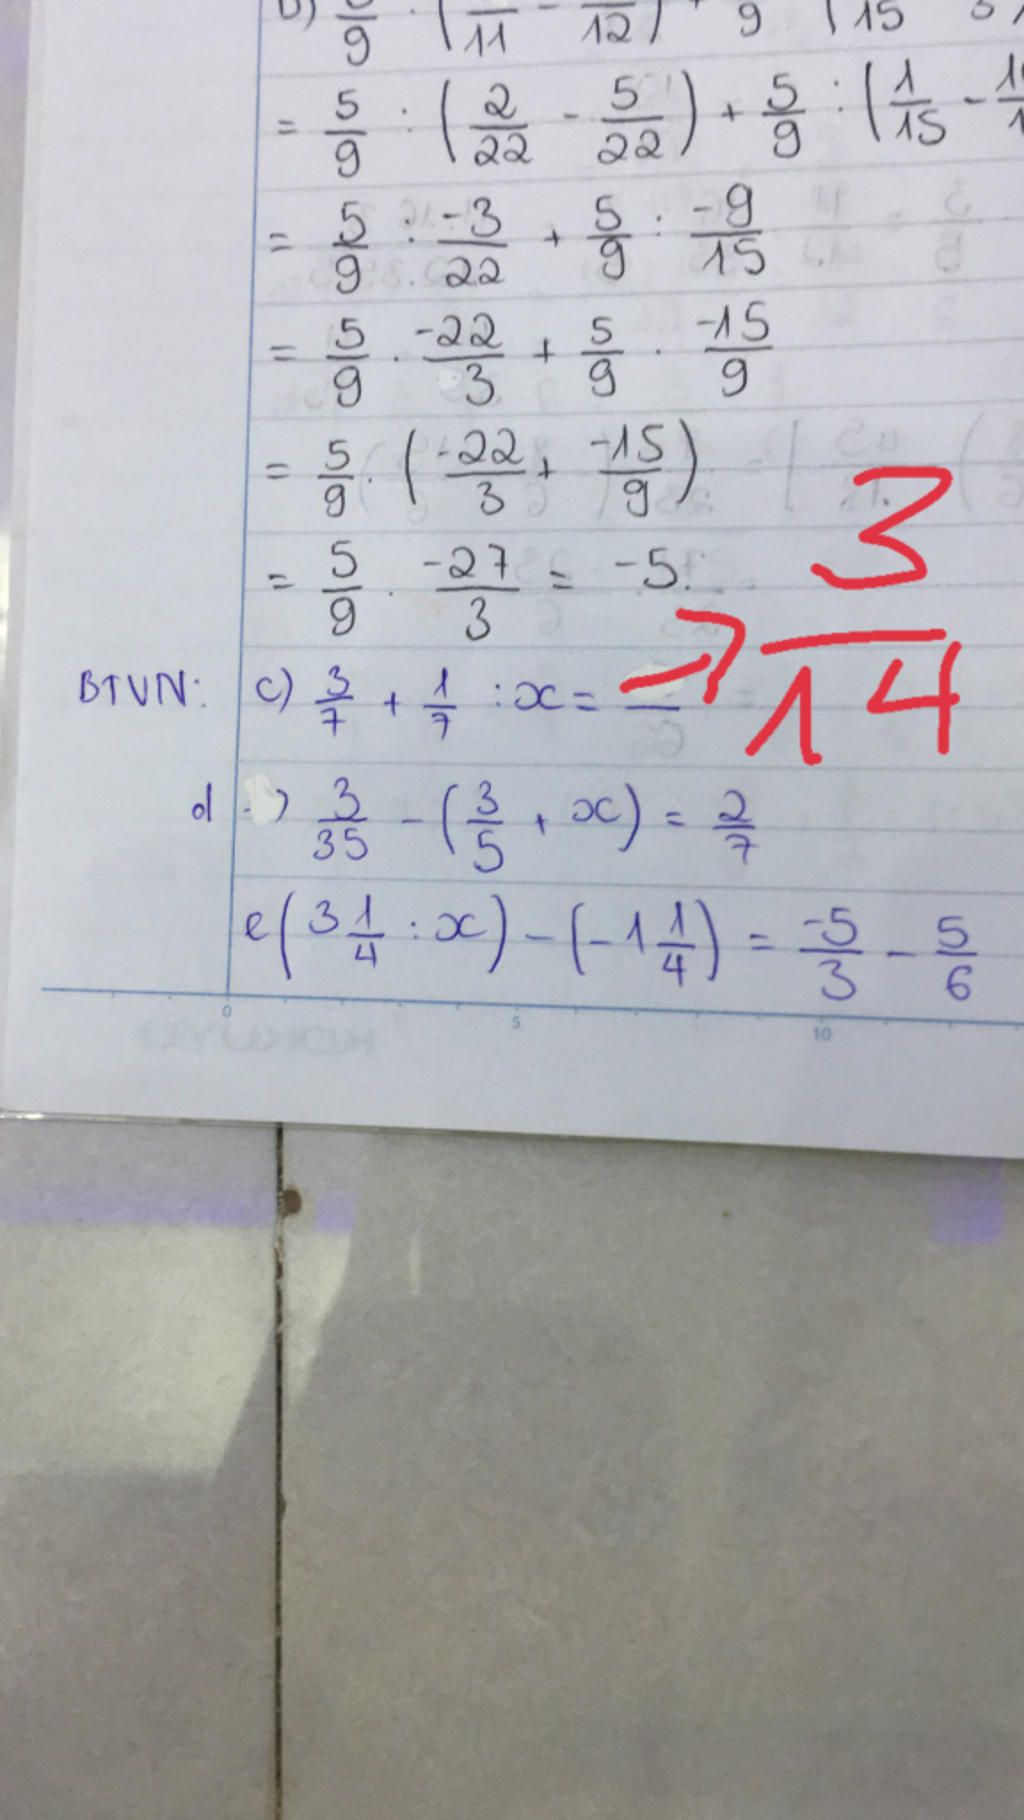 b) 5/9 : (1/11 - 5/12) + 5/9 : (1/15 -
= 5/9 : (2/22 - 5/22) + 5/9 : (1/15 - 10/1
= 5/9 : -3/22 + 5/9 : -9/15
= 5/9 . -22/3 + 5/9 . -15/9
= 5/9 . (-22/3 + -15/9)
= 5/9 . -27/3 = -5.
BTVN: c) 3/7 + 1/7 : x = → 3/14
d) 3/35 - (3/5 + x) = 2/7
e (3 1/4 : x) - (-1 1/4) = -5/3 - 5/6
0 5 10